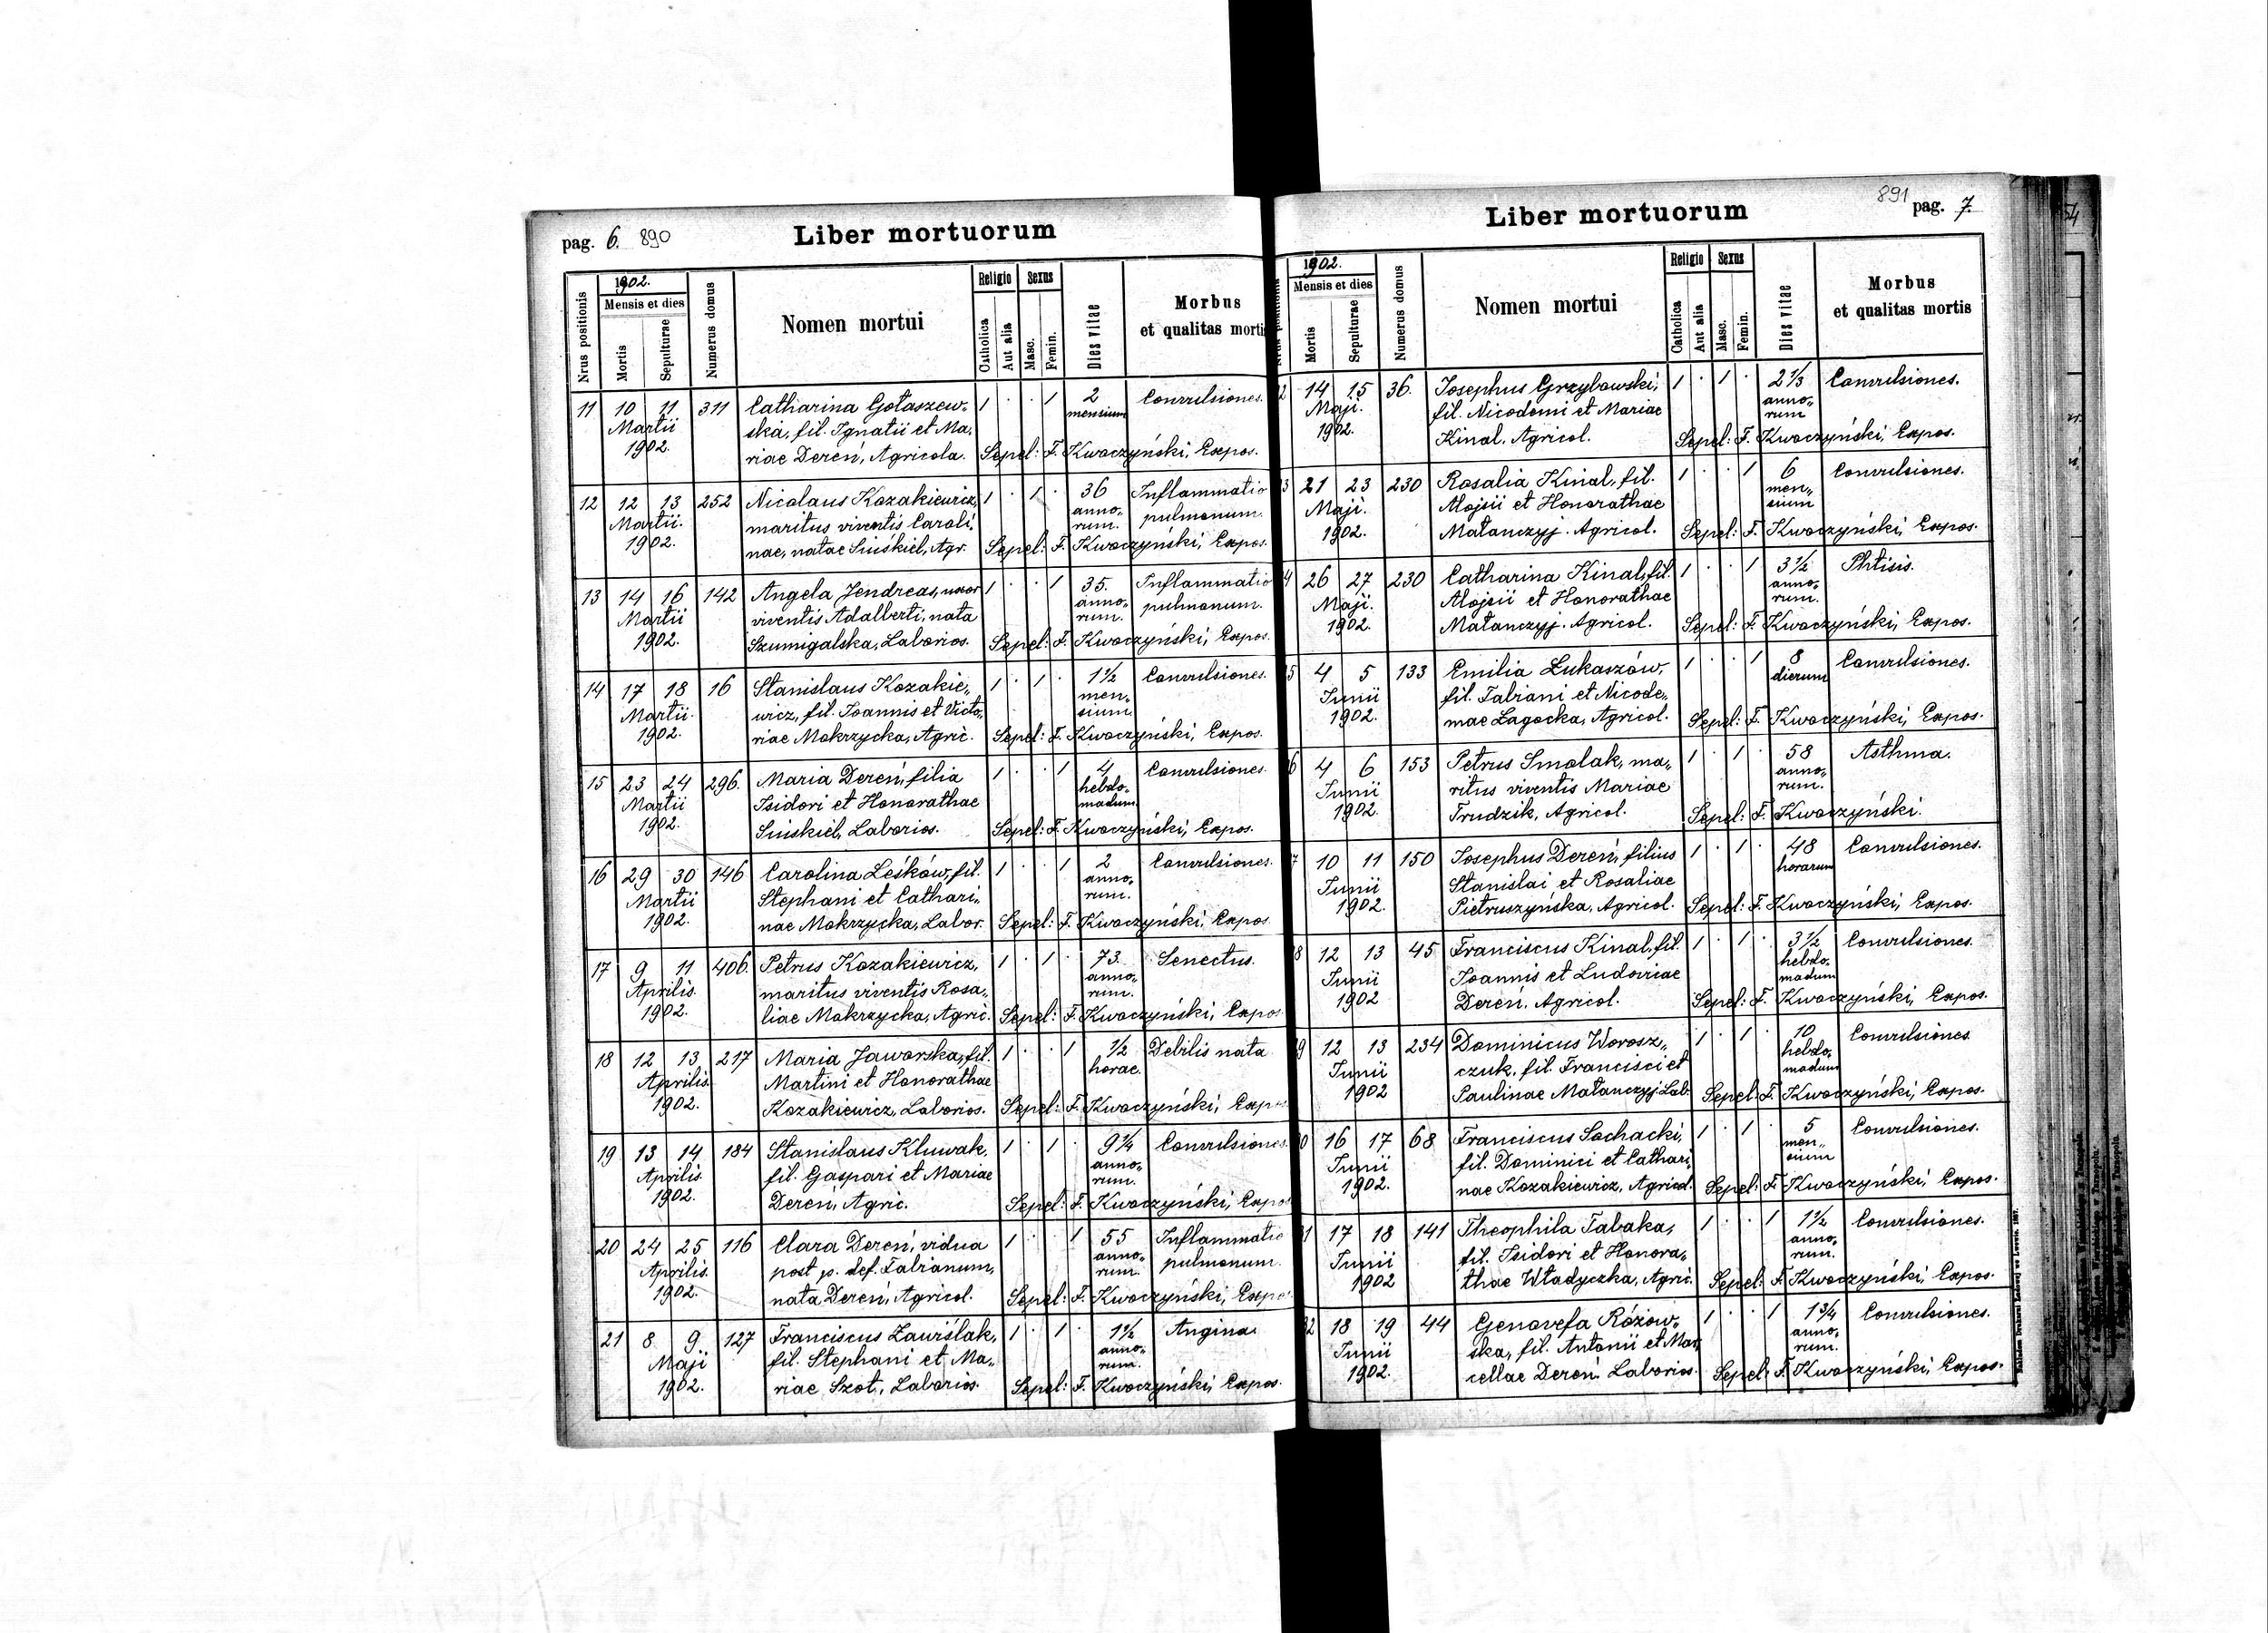 pag. 6. 890
Liber mortuorum
Nrus positionis
1902.
Mensis et dies
Mortis
Sepulturae
Numerus domus
Nomen mortui
Religio
Catholica
Aut alia
Sexus
Masc.
Femin.
Dies vitae
Morbus
et qualitas mortis
11 10 11 311 Catharina Gołaszew„ 1 · · 1 2 Convulsiones.
Martii ska, fil. Ignatii et Ma„ mensium
1902. riae Dereń, Agricola. Sepel: F. Kwoczyński, Expos.
12 12 13 252 Nicolaus Kozakiewicz, 1 · 1 · 36 Inflammatio
Martii. maritus viventis Caroli„ anno„ pulmonum.
1902. nae, natae Siuśkiel, Agr. rum. Sepel: F. Kwoczyński, Expos.
13 14 16 142 Angela Jendreas, uxor 1 · · 1 35. Inflammatio
Martii viventis Adalberti, nata anno„ pulmonum.
1902. Szumigalska, Laborios. rum. Sepel: F. Kwoczyński, Expos.
14 17 18 16 Stanislaus Kozakie„ 1 · 1 · 1½ Convulsiones.
Martii. wicz, fil. Joannis et Victo„ men„
1902. riae Mokrzycka, Agric. sium. Sepel: F. Kwoczyński, Expos.
15 23 24 296. Maria Dereń, filia 1 · · 1 4 Convulsiones.
Martii Isidori et Honorathae hebdo„
1902. Siuśkiel, Laborios. madum Sepel: F. Kwoczyński, Expos.
16 29 30 146 Carolina Leśków, fil. 1 · · 1 2 Convulsiones.
Martii Stephani et Cathari„ anno„
1902. nae Mokrzycka, Labor. rum. Sepel: F. Kwoczyński, Expos.
17 9 11 406. Petrus Kozakiewicz, 1 · 1 · 73 Senectus.
Aprilis. maritus viventis Rosa„ anno„
1902. liae Mokrzycka, Agric. rum. Sepel: F. Kwoczyński, Expos
18 12 13 217 Maria Jaworska, fil. 1 · · 1 ½ Debilis nata
Aprilis. Martini et Honorathae horae.
1902. Kozakiewicz, Laborios. Sepel: F. Kwoczyński, Expos
19 13 14 184 Stanislaus Kluwak, 1 · 1 · 9¼ Convulsiones.
Aprilis. fil. Gaspari et Mariae anno„
1902. Dereń, Agric. rum. Sepel: F. Kwoczyński, Expos
20 24 25 116 Clara Dereń, vidua 1 · · 1 55 Inflammatio
Aprilis. post p. def. Fabianum, anno„ pulmonum.
1902. nata Dereń, Agricol. rum. Sepel: F. Kwoczyński, Expos
21 8 9 127 Franciscus Zawiślak, 1 · 1 · 1½ Angina.
Maji fil. Stephani et Ma„ anno„
1902. riae Szot, Laborios. rum. Sepel: F. Kwoczyński, Expos.
891 pag. 7.
Liber mortuorum
1902.
Mensis et dies
Mortis
Sepulturae
Numerus domus
Nomen mortui
Religio
Catholica
Aut alia
Sexus
Masc.
Femin.
Dies vitae
Morbus
et qualitas mortis
2 14 15 36. Josephus Grzybowski, 1 · 1 · 2⅓ Convulsiones.
Maji. fil. Nicodemi et Mariae anno„
1902. Kinal, Agricol. rum Sepel: F. Kwoczyński, Expos.
3 21 23 230 Rosalia Kinal, fil. 1 · · 1 6 Convulsiones.
Maji. Alojsii et Honorathae men„
1902. Małanczyj. Agricol. sium Sepel: F. Kwoczyński, Expos.
4 26 27 230 Catharina Kinal, fil. 1 · · 1 3½ Phtisis.
Maji. Alojsii et Honorathae anno„
1902. Małanczyj. Agricol. rum. Sepel: F. Kwoczyński, Expos.
5 4 5 133 Emilia Łukaszów, 1 · · 1 8 Convulsiones.
Junii fil. Fabiani et Nicode„ dierum
1902. mae Łagocka, Agricol. Sepel: F. Kwoczyński, Expos.
6 4 6 153 Petrus Smolak, ma„ 1 · 1 · 58 Asthma.
Junii ritus viventis Mariae anno„
1902. Frudzik, Agricol. rum. Sepel: F. Kwoczyński.
7 10 11 150 Josephus Dereń, filius 1 · 1 · 48 Convulsiones.
Junii Stanislai et Rosaliae horarum
1902. Pietruszyńska, Agricol. Sepel: F. Kwoczyński, Expos.
8 12 13 45 Franciscus Kinal, fil. 1 · 1 · 3½ Convulsiones.
Junii Joannis et Ludoviae hebdo„
1902 Dereń, Agricol. madum Sepel: F. Kwoczyński, Expos.
9 12 13 234 Dominicus Worosz„ 1 · 1 · 10 Convulsiones
Junii czuk, fil. Francisci et hebdo„
1902 Paulinae Małanczyj. Lab. madum Sepel: F. Kwoczyński, Expos.
0 16 17 68 Franciscus Sochacki, 1 · 1 · 5 Convulsiones.
Junii fil. Dominici et Cathari„ men„
1902. nae Kozakiewicz, Agricol. sium Sepel: F. Kwoczyński, Expos.
1 17 18 141 Theophila Tabaka, 1 · · 1 1½ Convulsiones.
Junii fil. Isidori et Honora„ anno„
1902 thae Władyczka, Agric. rum. Sepel: F. Kwoczyński, Expos.
2 18 19 44 Genovefa Różow„ 1 · · 1 1¾ Convulsiones.
Junii ska, fil. Antonii et Mar„ anno„
1902. cellae Dereń. Laborios. rum. Sepel: F. Kwoczyński, Expos.